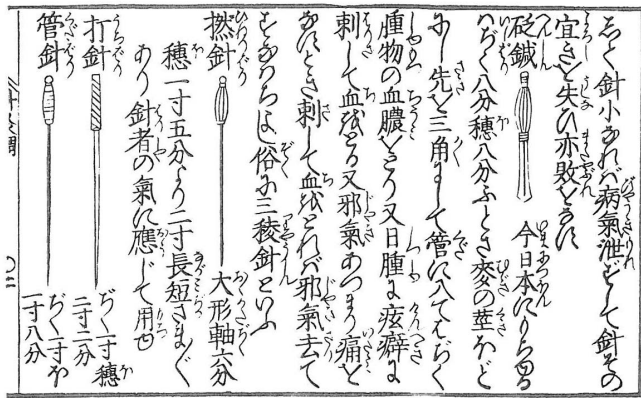 して針小なれバ病氣泄ずして針その
宜きを失ひ亦敗をなす
砭鍼 今日本にもちゆる
ぢく八分穂八分ふとさ麥の莖ほど
にし先を三角にして管に入てはぢく
腫物の血膿をとり又日腫に痃癖に
刺して血をとる又邪氣あつまり痛を
なすとき刺して血をとれバ邪氣去て
すなはちよし俗に三稜針といふ
撚針 大形軸六分
穂一寸五分より二寸長短さまざま
あり針者の氣に應じて用ゆ
打針 ぢく二寸穂
二寸二分
管針 ぢく一寸ほ
一寸八分